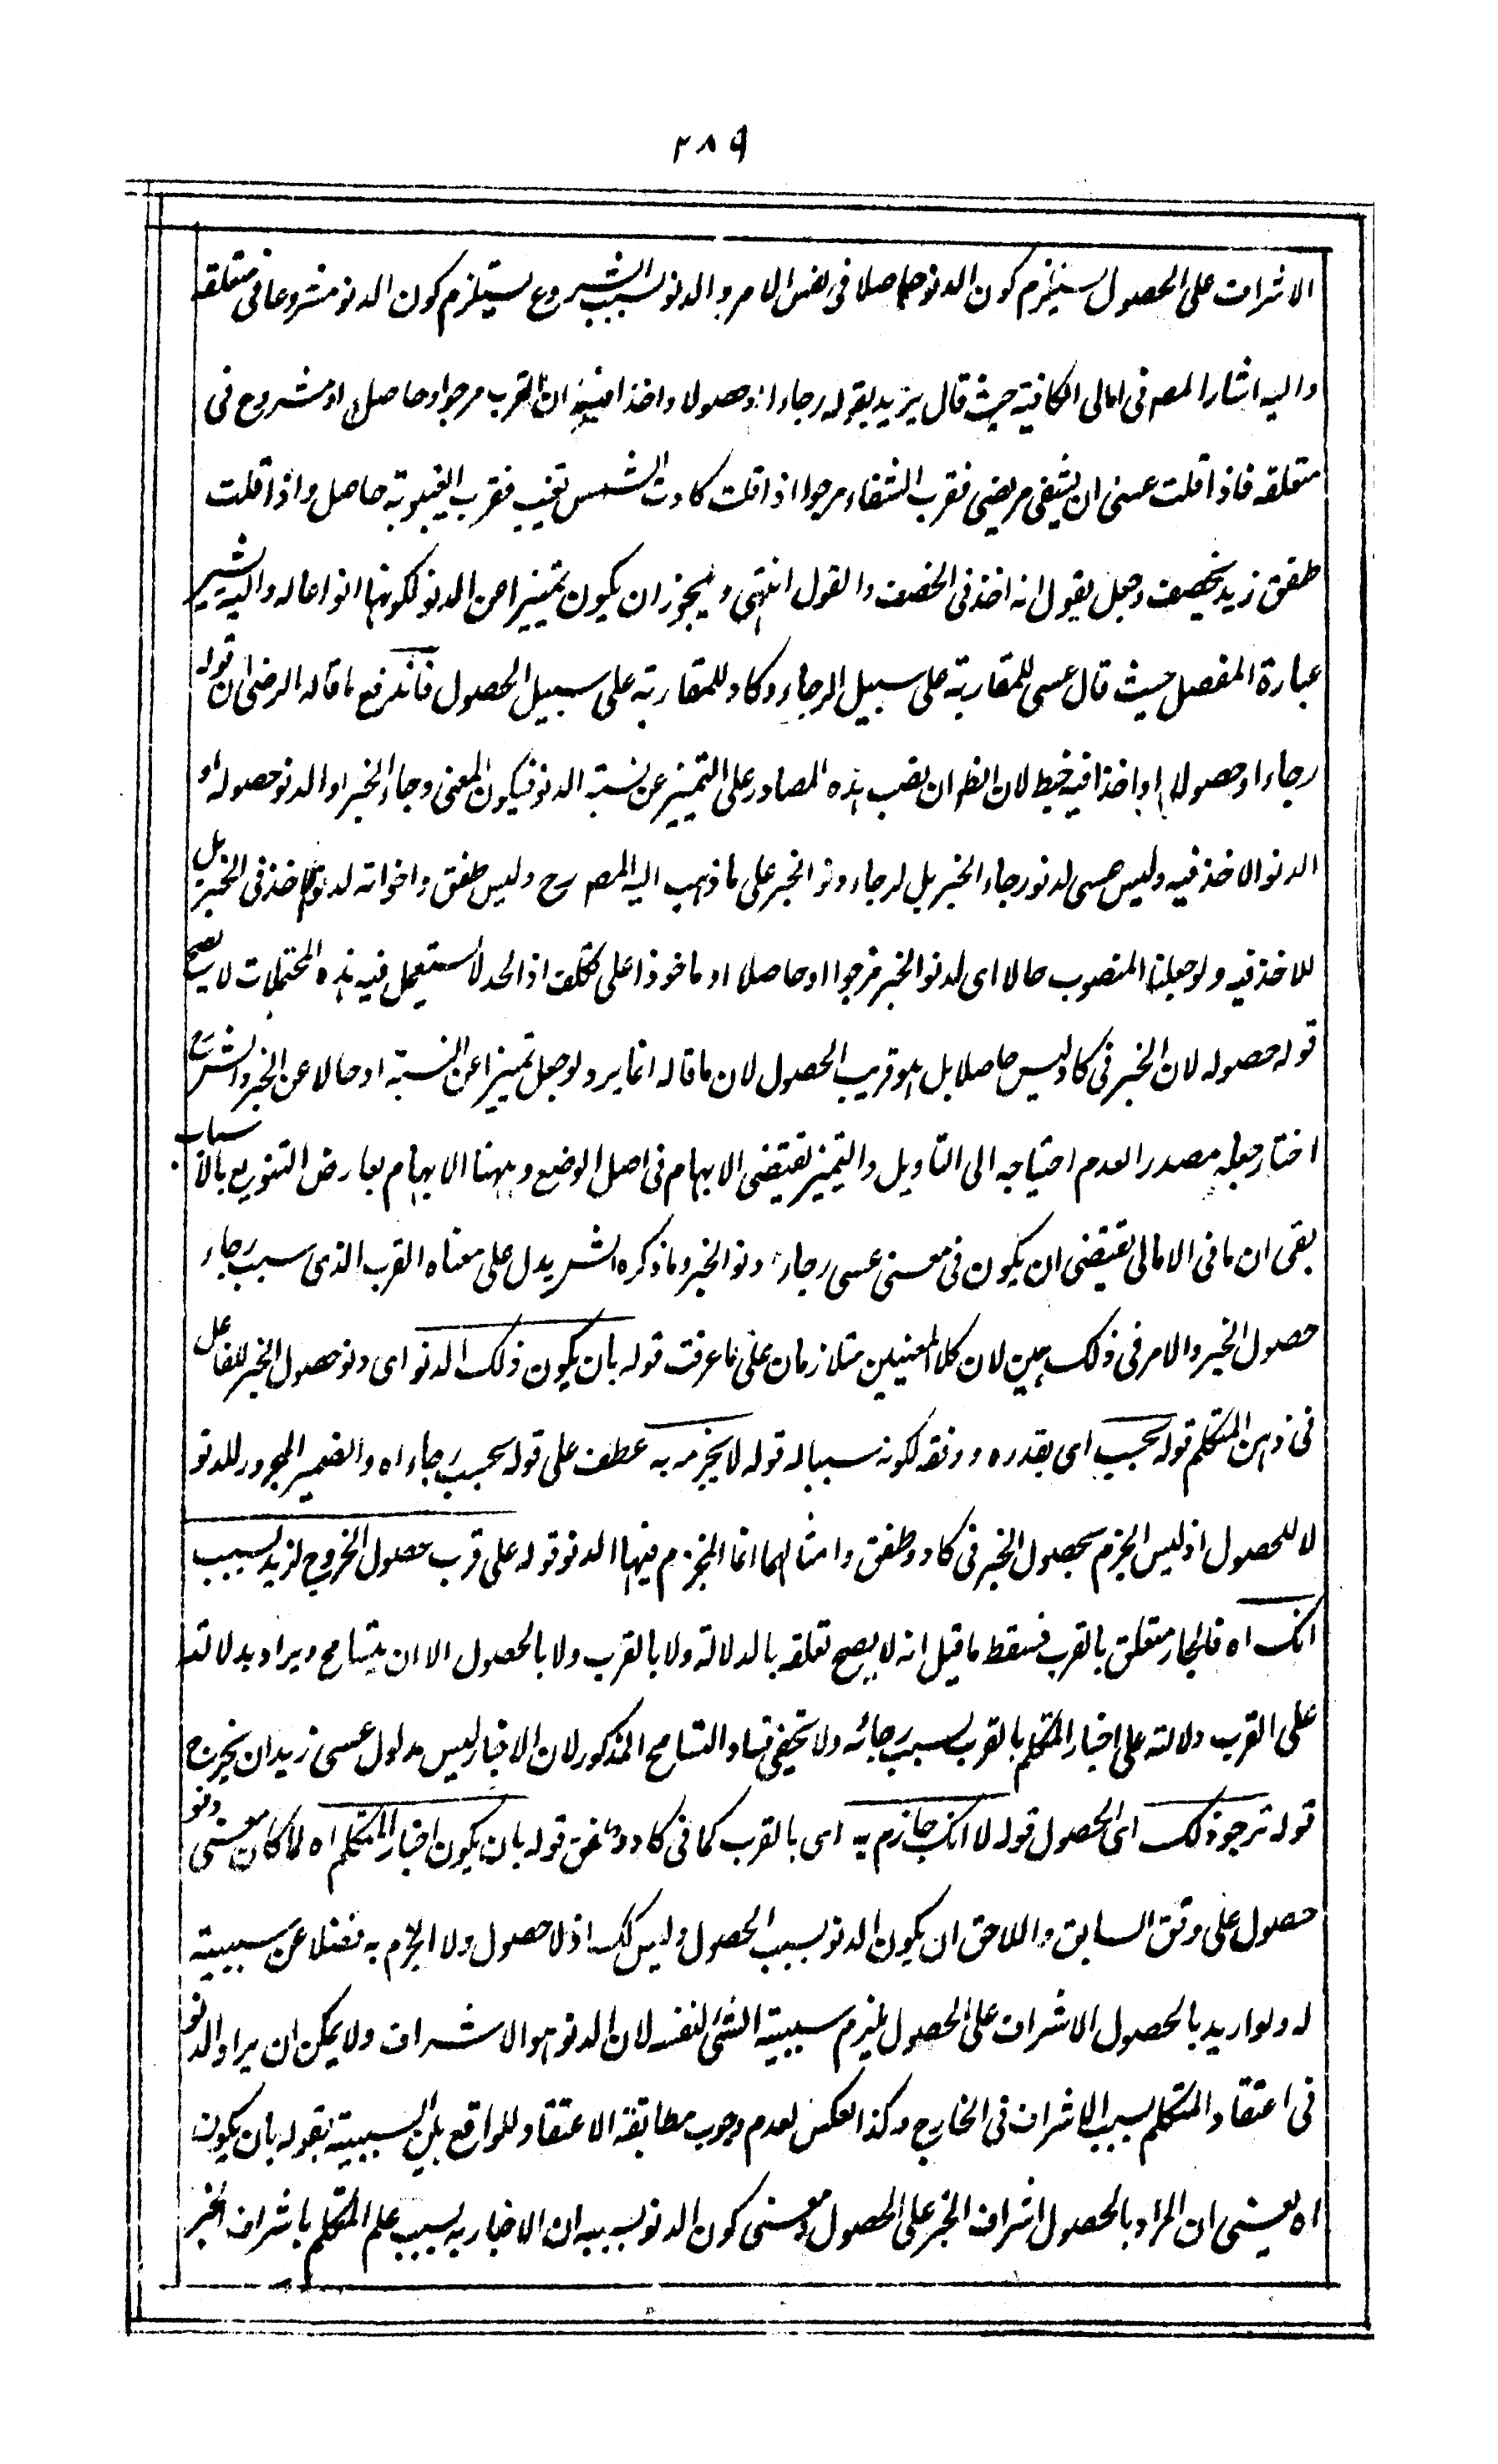 ٢٨٩
الاشراف على الحصول يستلزم كون الدنو حاصلا فى نفس الامر والدنو بسبب الشروع يستلزم كون الدنو مشروعا فى متعلقه
واليه اشار المصه فى امالى الكافية حيث قال يريد بقوله رجاء او حصولا واخذا فيه ان القرب مرجو او حاصل او مشروع فى
متعلقه فاذا قلت عسى ان يشفى مريضى فقرب الشفاء مرجو اذا قلت كادت الشمس تغيب فقرب الغيبوبة حاصل واذا قلت
طفق زيد يخصف وجعل يقول انه اخذ فى الخصف والقول انتهى ويجوز ان يكون تمييزا عن الدنو لكونها انواعا له واليه يشير
عبارة المفصل حيث قال عسى للمقاربة على سبيل الرجاء وكاد للمقاربة على سبيل الحصول فاندفع ما قاله الرضى ان قوله
رجاء او حصولا او اخذا فيه خبط لان الظ ان نصب هذه المصادر على التمييز عن نسبة الدنو فيكون المعنى رجاء الخبر او الدنو حصوله او
الدنو الاخذ فيه وليس عسى لدنو رجاء الخبر بل لرجاء دنو الخبر على ما ذهب اليه المصه رح وليس طفق واخواته لدنو الاخذ فى الخبر بل
للاخذ فيه ولو جعلنا المنصوب حالا اى لدنو الخبر مرجوا او حاصلا او ماخوذا على تكلف اذ الحد لا يستعمل فيه هذه المحتملات لا يصح
قوله حصوله لان الخبر فى كاد ليس حاصلا بل هو قريب الحصول لان ما قاله انما يرد لو جعل تمييزا عن النسبة او حالا عن الخبر والشرح
اختار جعله مصدرا لعدم احتياجه الى التاويل والتمييز يقتضى الابهام فى اصل الوضع وههنا الابهام بعارض التنويع بالاسباب
بقى ان ما فى الامالى يقتضى ان يكون فى معنى عسى رجاء دنو الخبر وما ذكره الشر يدل على معناه القرب الذى سبب رجاء
حصول الخبر والامر فى ذلك هين لان كلا المعنيين متلازمان على ما عرفت قوله بان يكون ذلك الدنو اى دنو حصول الخبر للفاعل
فى ذهن المتكلم قوله بحسب اى بقدره ووفقه لكونه سببا له قوله لا يجزم به عطف على قوله بحسب رجاء اه والضمير المجرور للدنو
لا للحصول اذ ليس الجزم بحصول الخبر فى كاد وطفق وامثالهما انما الجزم فيها الدنو قوله على قرب حصول الخروج لزيد بسبب
انك اه فالجار متعلق بالقرب فسقط ما قيل انه لا يصح تعلقه بالدلالة ولا بالقرب ولا بالحصول الا ان يتسامح ويراد بدلالته
على القرب دلالته على اخبار المتكلم بالقرب بسبب رجائه ولا يخفى فساد التسامح المذكور لان الاخبار ليس مدلول عسى زيد ان يخرج
قوله ترجو ذلك اى الحصول قوله لا انك جازم به اى بالقرب كما فى كاد وطفق قوله بان يكون اخبار المتكلم اه لما كان معنى دنو
حصول على وفق السابق واللاحق ان يكون الدنو بسبب الحصول وليس كك اذ لا حصول ولا الجزم به فضلا عن سببيته
له ولو اريد بالحصول الاشراف على الحصول يلزم سببية الشئ لنفسه لان الدنو هو الاشراف ولا يمكن ان يراد الدنو
فى اعتقاد المتكلم بسبب الاشراف فى الخارج وكذا العكس لعدم وجوب مطابقة الاعتقاد للواقع بين السببية بقوله بان يكون
اه يعنى ان المراد بالحصول اشراف الخبر على الحصول ومعنى كون الدنو بسببه ان الاخبار به بسبب علم المتكلم باشراف الخبر